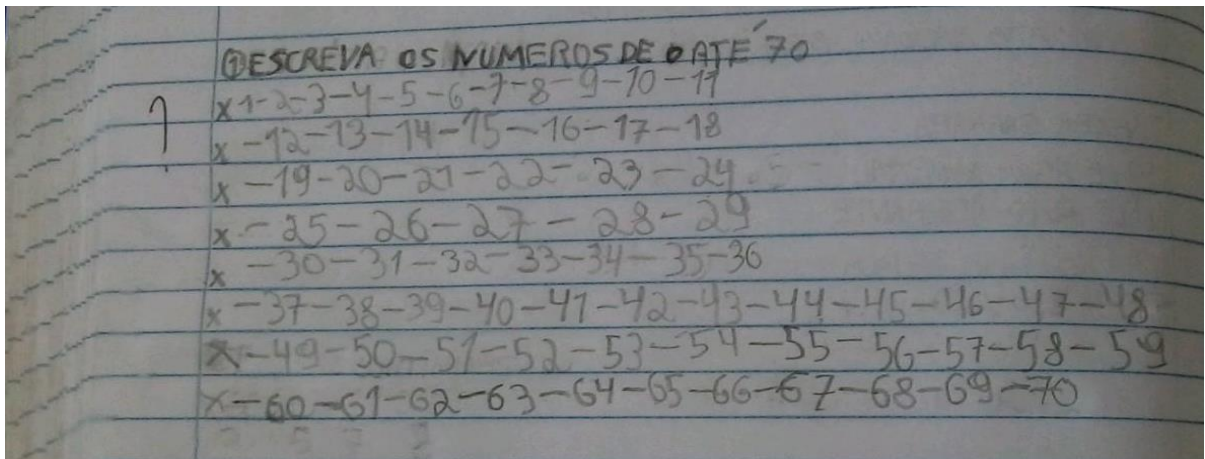 ① ESCREVA OS NUMEROS DE 0 ATÉ 70
x 1-2-3-4-5-6-7-8-9-10-11
x -12-13-14-15-16-17-18
x -19-20-21-22-23-24
x -25-26-27-28-29
x -30-31-32-33-34-35-36
x -37-38-39-40-41-42-43-44-45-46-47-48
x -49-50-51-52-53-54-55-56-57-58-59
x -60-61-62-63-64-65-66-67-68-69-70